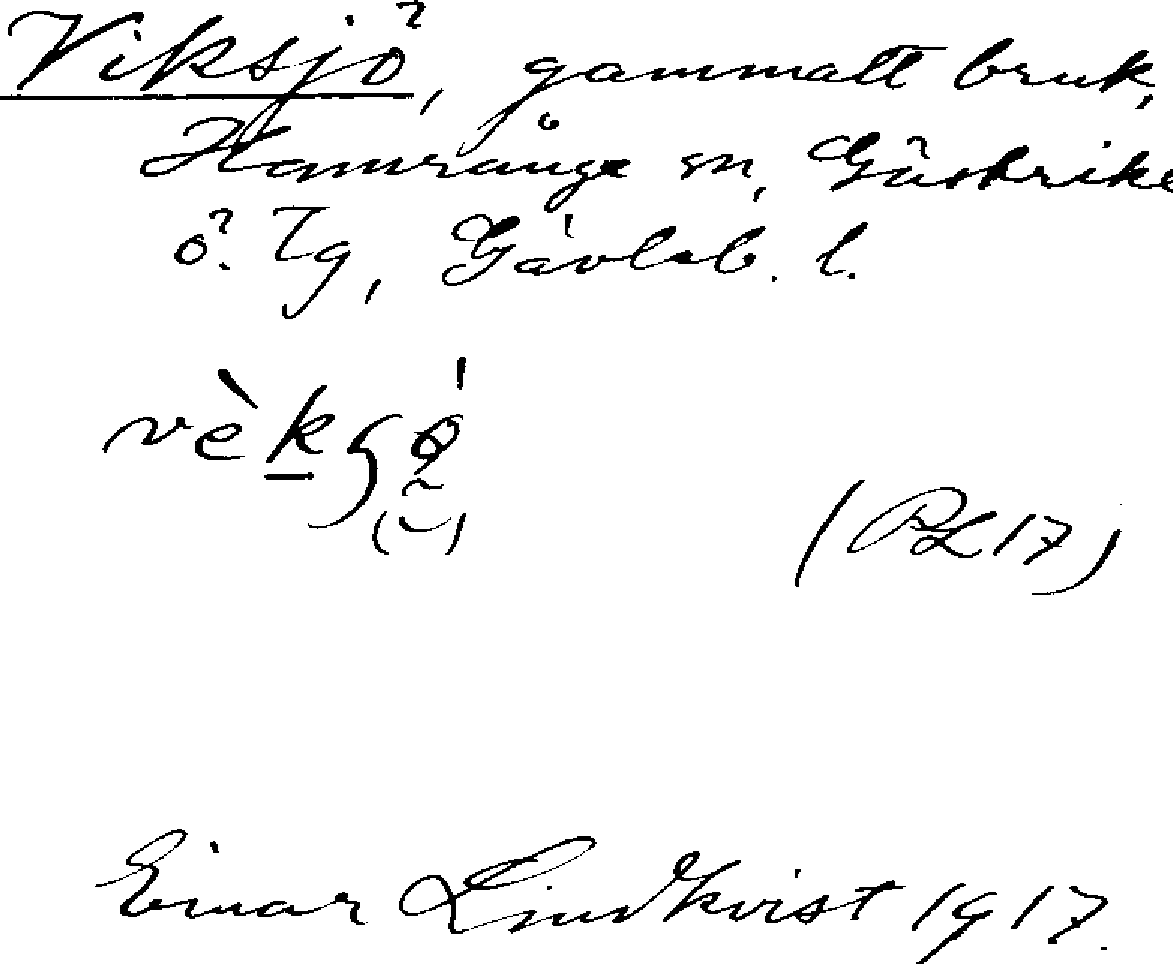 Viksjö, gammalt bruk,
Hamrånge sn, Gästrike
ö. Tg, Gävleb. l.
(PL 17)
Einar Lindkvist 1917.